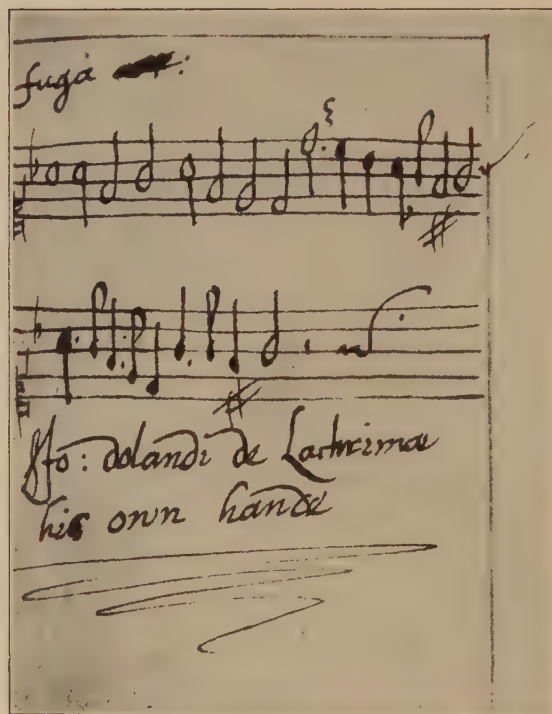 fuga
Jo: dolandi de Lachrimae
his own hande